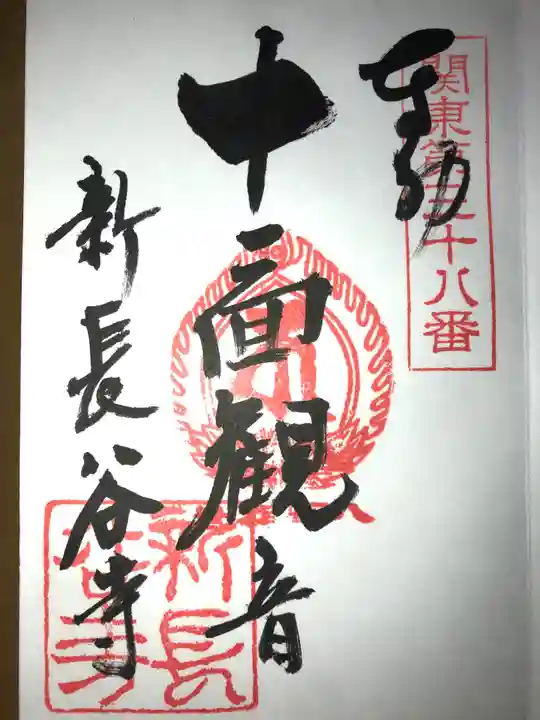 関東第三十八番
奉拝
十一面観音
新長谷寺
新長
谷寺